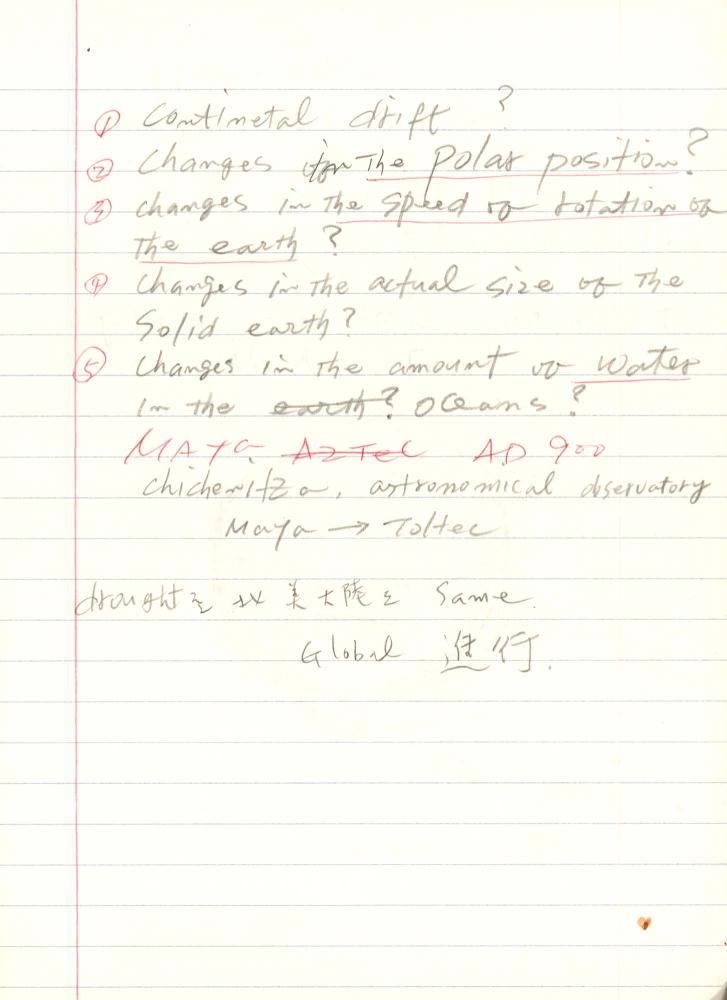 ① Continetal drift ?
② Changes in The Polar position?
③ changes in the speed of rotation of
the earth ?
④ Changes in The actual size of The
Solid earth?
⑤ Changes in the amount of water
in the earth? oceans ?
MAYA AZTEC A.D 900
chichenitza, astronomical observatory
Maya → Toltec
drought 는 北美大陸도 Same.
Global 進行.